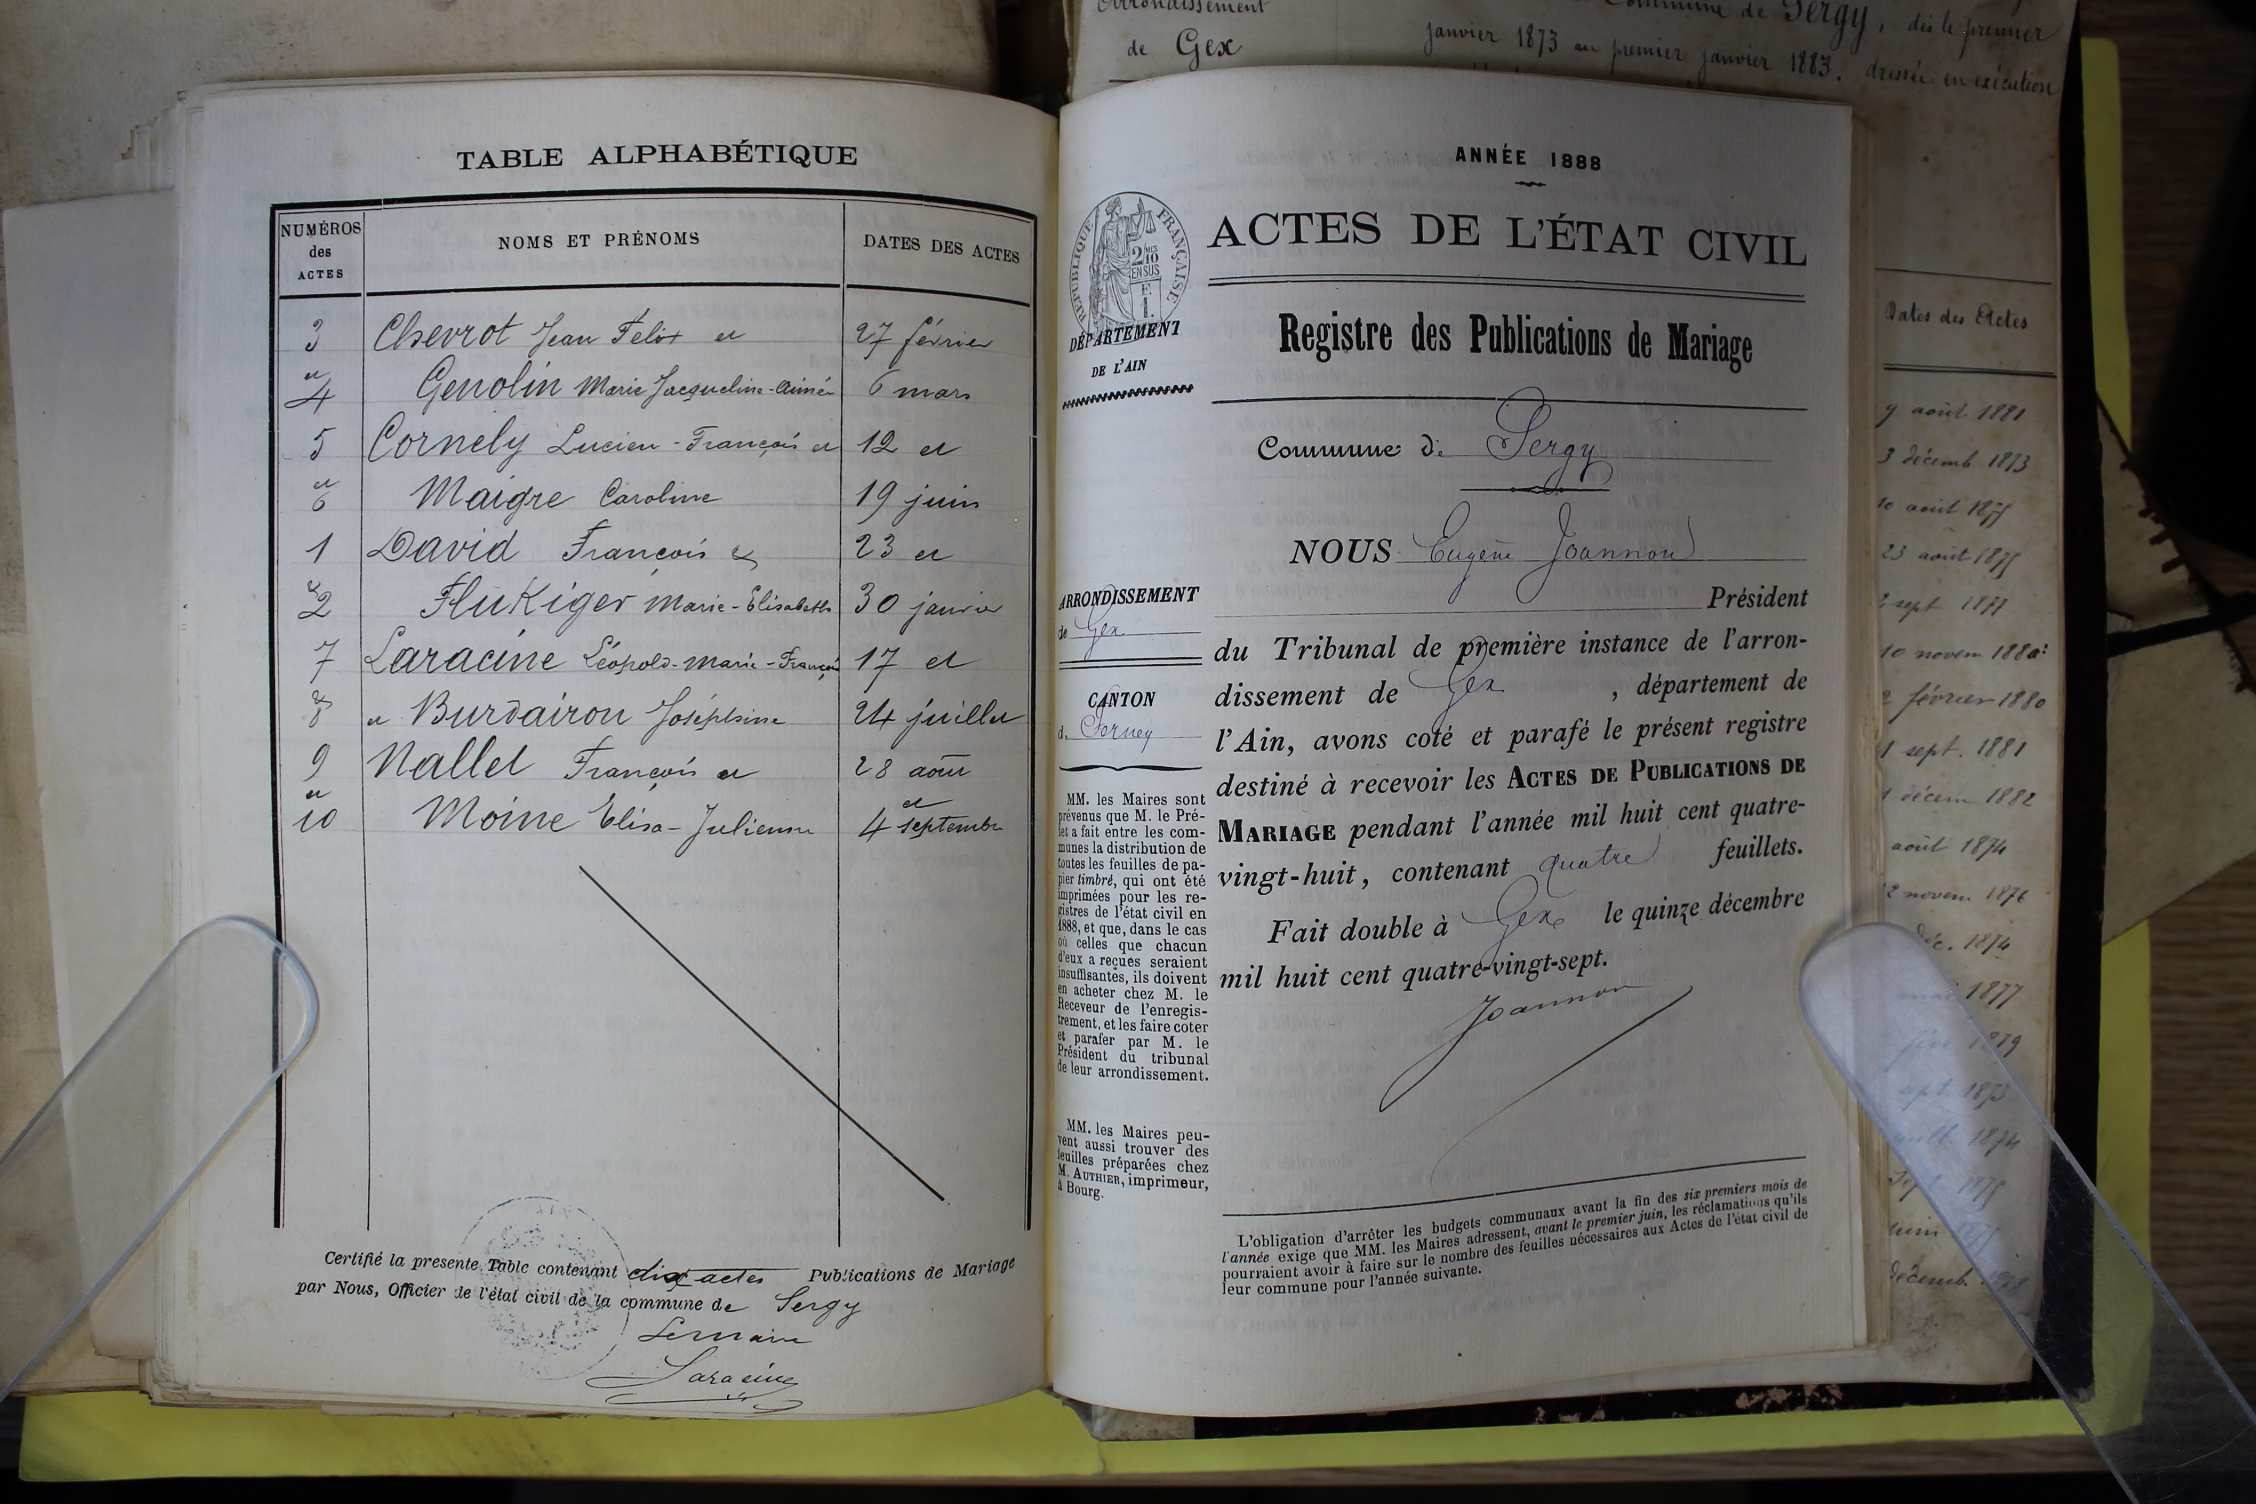 Arrondissement
de Gex
Commune de Sergy, dès le premier
janvier 1873 au premier janvier 1883. dressée en exécution
TABLE ALPHABÉTIQUE
NUMÉROS des ACTES
NOMS ET PRÉNOMS
DATES DES ACTES
3 Chevrot Jean Felix et 27 février
et
4 Genolin Marie Jacqueline-Aimée 6 mars
5 Cornely Lucien-François et 12 et
et
6 Maigre Caroline 19 juin
1 David François et 23 et
et
2 Flukiger Marie-Elisabeth 30 janvier
7 Laracine Léopold-Marie-François 17 et
et
8 et Burdairon Joséphine 24 juillet
9 Nallet François et 28 août
et et
10 Moine Elisa-Julienne 4 septembre
Certifié la presente Table contenant dix actes Publications de Mariage
par Nous, Officier de l'état civil de la commune de Sergy
Le maire
Laracine
ANNÉE 1888
RÉPUBLIQUE FRANÇAISE
2/10
EN SUS
1.
DÉPARTEMENT
DE L'AIN
ACTES DE L'ÉTAT CIVIL
Registre des Publications de Mariage
Commune de Sergy
NOUS Eugène Joannon
Président
du Tribunal de première instance de l'arron-
dissement de Gex , département de
l'Ain, avons coté et parafé le présent registre
destiné à recevoir les ACTES DE PUBLICATIONS DE
MARIAGE pendant l'année mil huit cent quatre-
vingt-huit, contenant quatre feuillets.
Fait double à Gex le quinze décembre
mil huit cent quatre-vingt-sept.
Joannon
ARRONDISSEMENT
de Gex
CANTON
de Ferney
MM. les Maires sont
prévenus que M. le Pré-
fet a fait entre les com-
munes la distribution de
toutes les feuilles de pa-
pier timbré, qui ont été
imprimées pour les re-
gistres de l'état civil en
1888, et que, dans le cas
où celles que chacun
d'eux a reçues seraient
insuffisantes, ils doivent
en acheter chez M. le
Receveur de l'enregis-
trement, et les faire coter
et parafer par M. le
Président du tribunal
de leur arrondissement.
MM. les Maires peu-
vent aussi trouver des
feuilles préparées chez
M. AUTHIER, imprimeur,
à Bourg.
L'obligation d'arrêter les budgets communaux avant la fin des six premiers mois de
l'année exige que MM. les Maires adressent, avant le premier juin, les réclamations qu'ils
pourraient avoir à faire sur le nombre des feuilles nécessaires aux Actes de l'état civil de
leur commune pour l'année suivante.
Dates des Actes
9 août 1881
3 décemb. 1873
10 août 1875
23 août 1875
sept 1877
10 novem 1880
2 février 1880
1 sept. 1881
1 décem 1882
août 1874
2 novem. 1876
déc. 1874
1877
1879
sept 1873
1874
sept
juin
décemb.